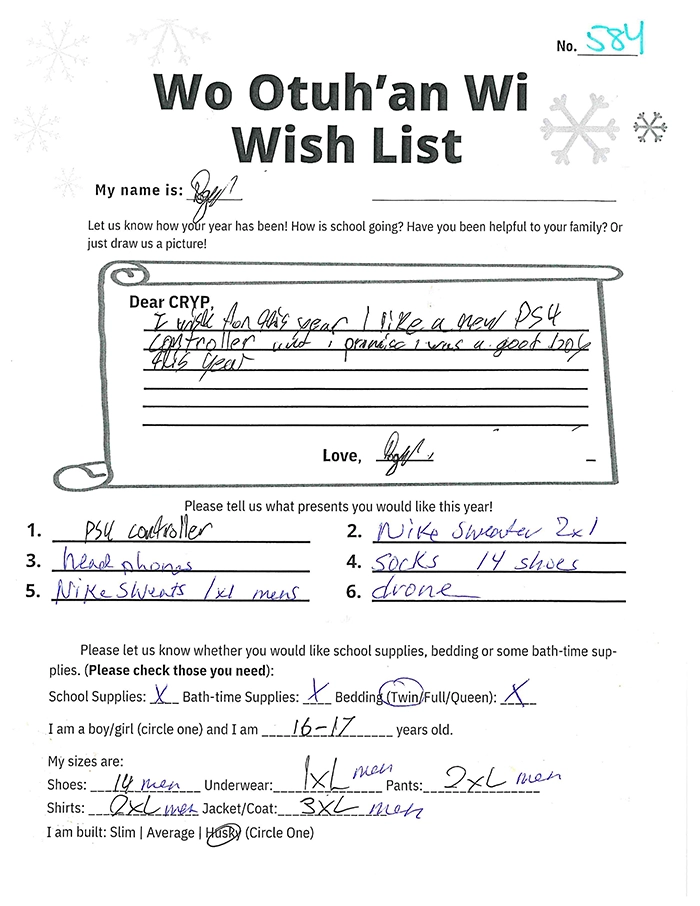 No. 584
Wo Otuh'an Wi
Wish List
My name is:
Let us know how your year has been! How is school going? Have you been helpful to your family? Or
just draw us a picture!
Dear CRYP,
I wish for this year I like a new PS4
controller and i promise i was a good boy
this year
Love,
Please tell us what presents you would like this year!
1. PS4 controller 2. Nike Sweater 2x1
3. head phones 4. socks 14 shoes
5. Nike Sweats 1x1 mens 6. drone
Please let us know whether you would like school supplies, bedding or some bath-time sup-
plies. (Please check those you need):
School Supplies: X Bath-time Supplies: X Bedding (Twin/Full/Queen): X
I am a boy/girl (circle one) and I am 16-17 years old.
My sizes are:
Shoes: 14 men Underwear: 1XL men Pants: 2XL men
Shirts: 2XL men Jacket/Coat: 3XL men
I am built: Slim | Average | Husky (Circle One)